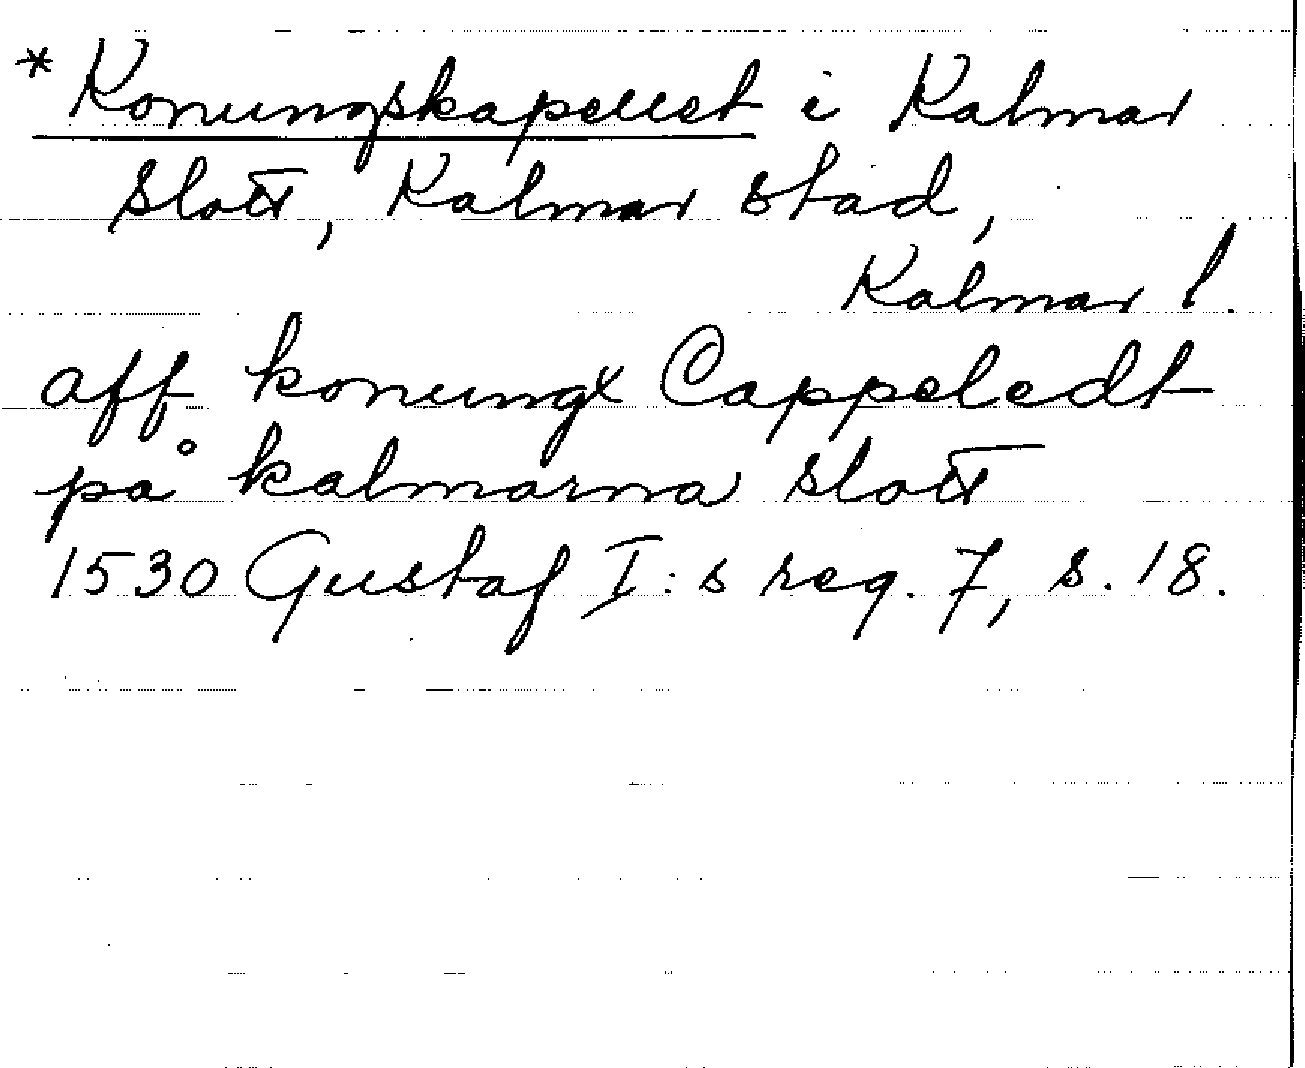 * Konungskapellet i Kalmar
slott, Kalmar stad,
Kalmar l.
aff konungx Cappeledt
på kalmarna slott
1530 Gustaf I:s reg. 7, s. 18.